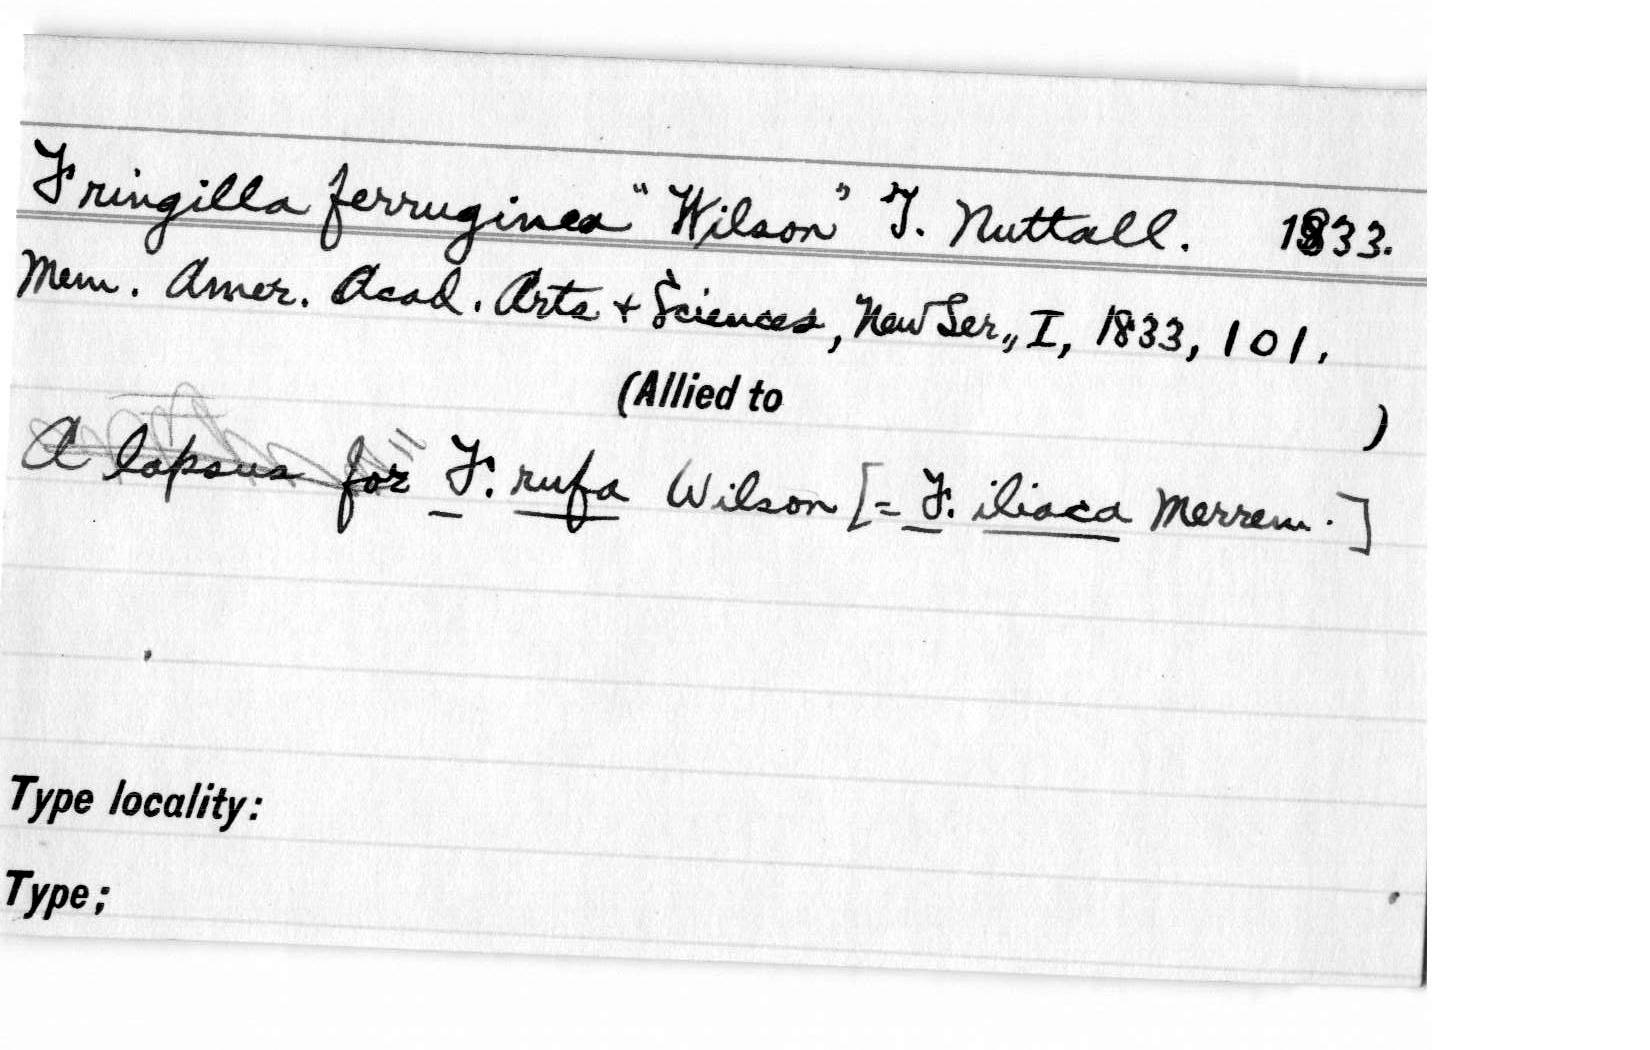 Fringilla ferruginea "Wilson" T. Nuttall. 1833.
Mem. Amer. Acad. Arts + Sciences, New Ser., I, 1833, 101.
(Allied to )
A lapsus for F. rufa Wilson [= F. iliaca Merrem.]
Type locality:
Type;